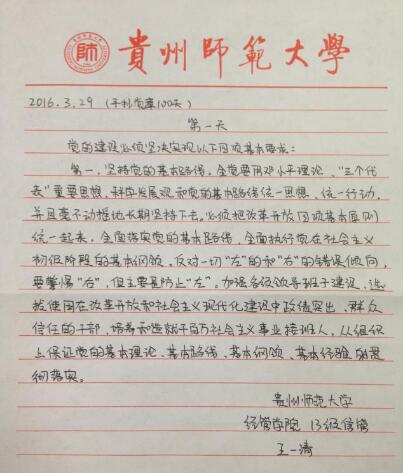 師
貴州師範大學
2016.3.29 (手抄党章100天)
第一天
党的建设必须坚决实现以下四项基本要求:
第一,坚持党的基本路线。全党要用邓小平理论、"三个代
表"重要思想、科学发展观和党的基本路线统一思想,统一行动,
并且毫不动摇地长期坚持下去。必须把改革开放同四项基本原则
统一起来,全面落实党的基本路线,全面执行党在社会主义
初级阶段的基本纲领,反对一切"左"的和"右"的错误倾向,
要警惕"右",但主要是防止"左"。加强各级领导班子建设,选
拔使用在改革开放和社会主义现代化建设中政绩突出、群众
信任的干部,培养和造就千百万社会主义事业接班人,从组织
上保证党的基本理论、基本路线、基本纲领、基本经验的贯
彻落实。
贵州师范大学
经管学院 13级信管
王一清